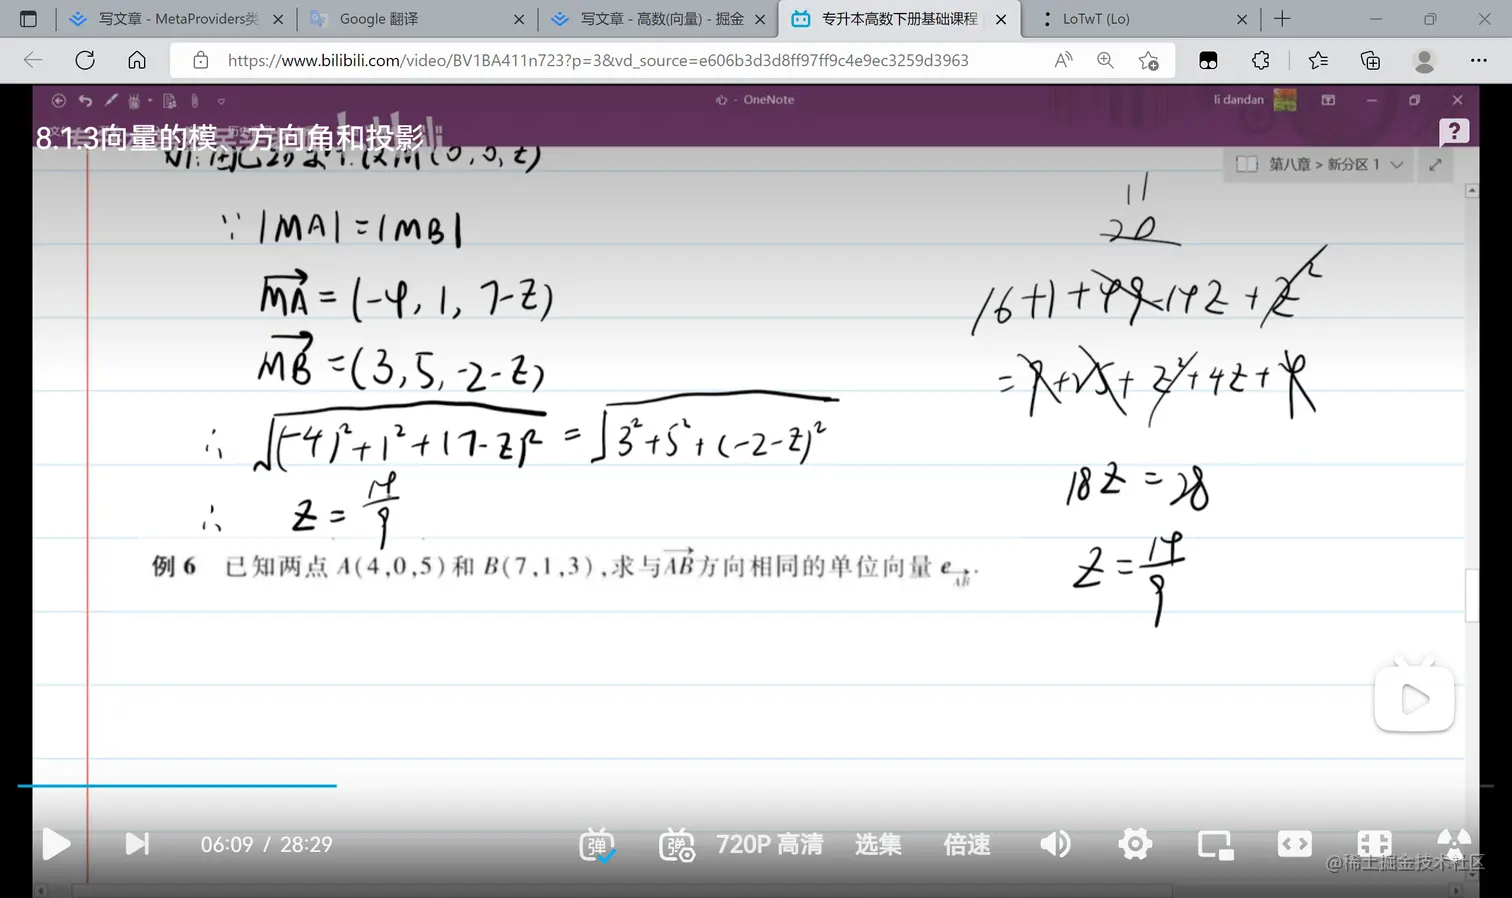 写文章 - MetaProviders类
Google 翻译
写文章 - 高数(向量) - 掘金
专升本高数下册基础课程
LoTwT (Lo)
https://www.bilibili.com/video/BV1BA411n723?p=3&vd_source=e606b3d3d8ff97ff9c4e9ec3259d3963
- OneNote
li dandan
8.1.3向量的模、方向角和投影
第八章 > 新分区 1
(0,0,z)
∵ |MA|=|MB|
MA→ = (-4, 1, 7-z)
MB→ = (3, 5, -2-z)
∴ √((-4)²+1²+(7-z)²) = √(3²+5²+(-2-z)²)
∴ z = 14/9
11
20
16+1+49-14z+z²
=9+25+z²+4z+4
18z=28
z=14/9
例 6 已知两点 A(4,0,5)和 B(7,1,3),求与AB→方向相同的单位向量 e_AB→.
06:09 / 28:29
弹
弹
720P 高清
选集
倍速
@稀土掘金技术社区